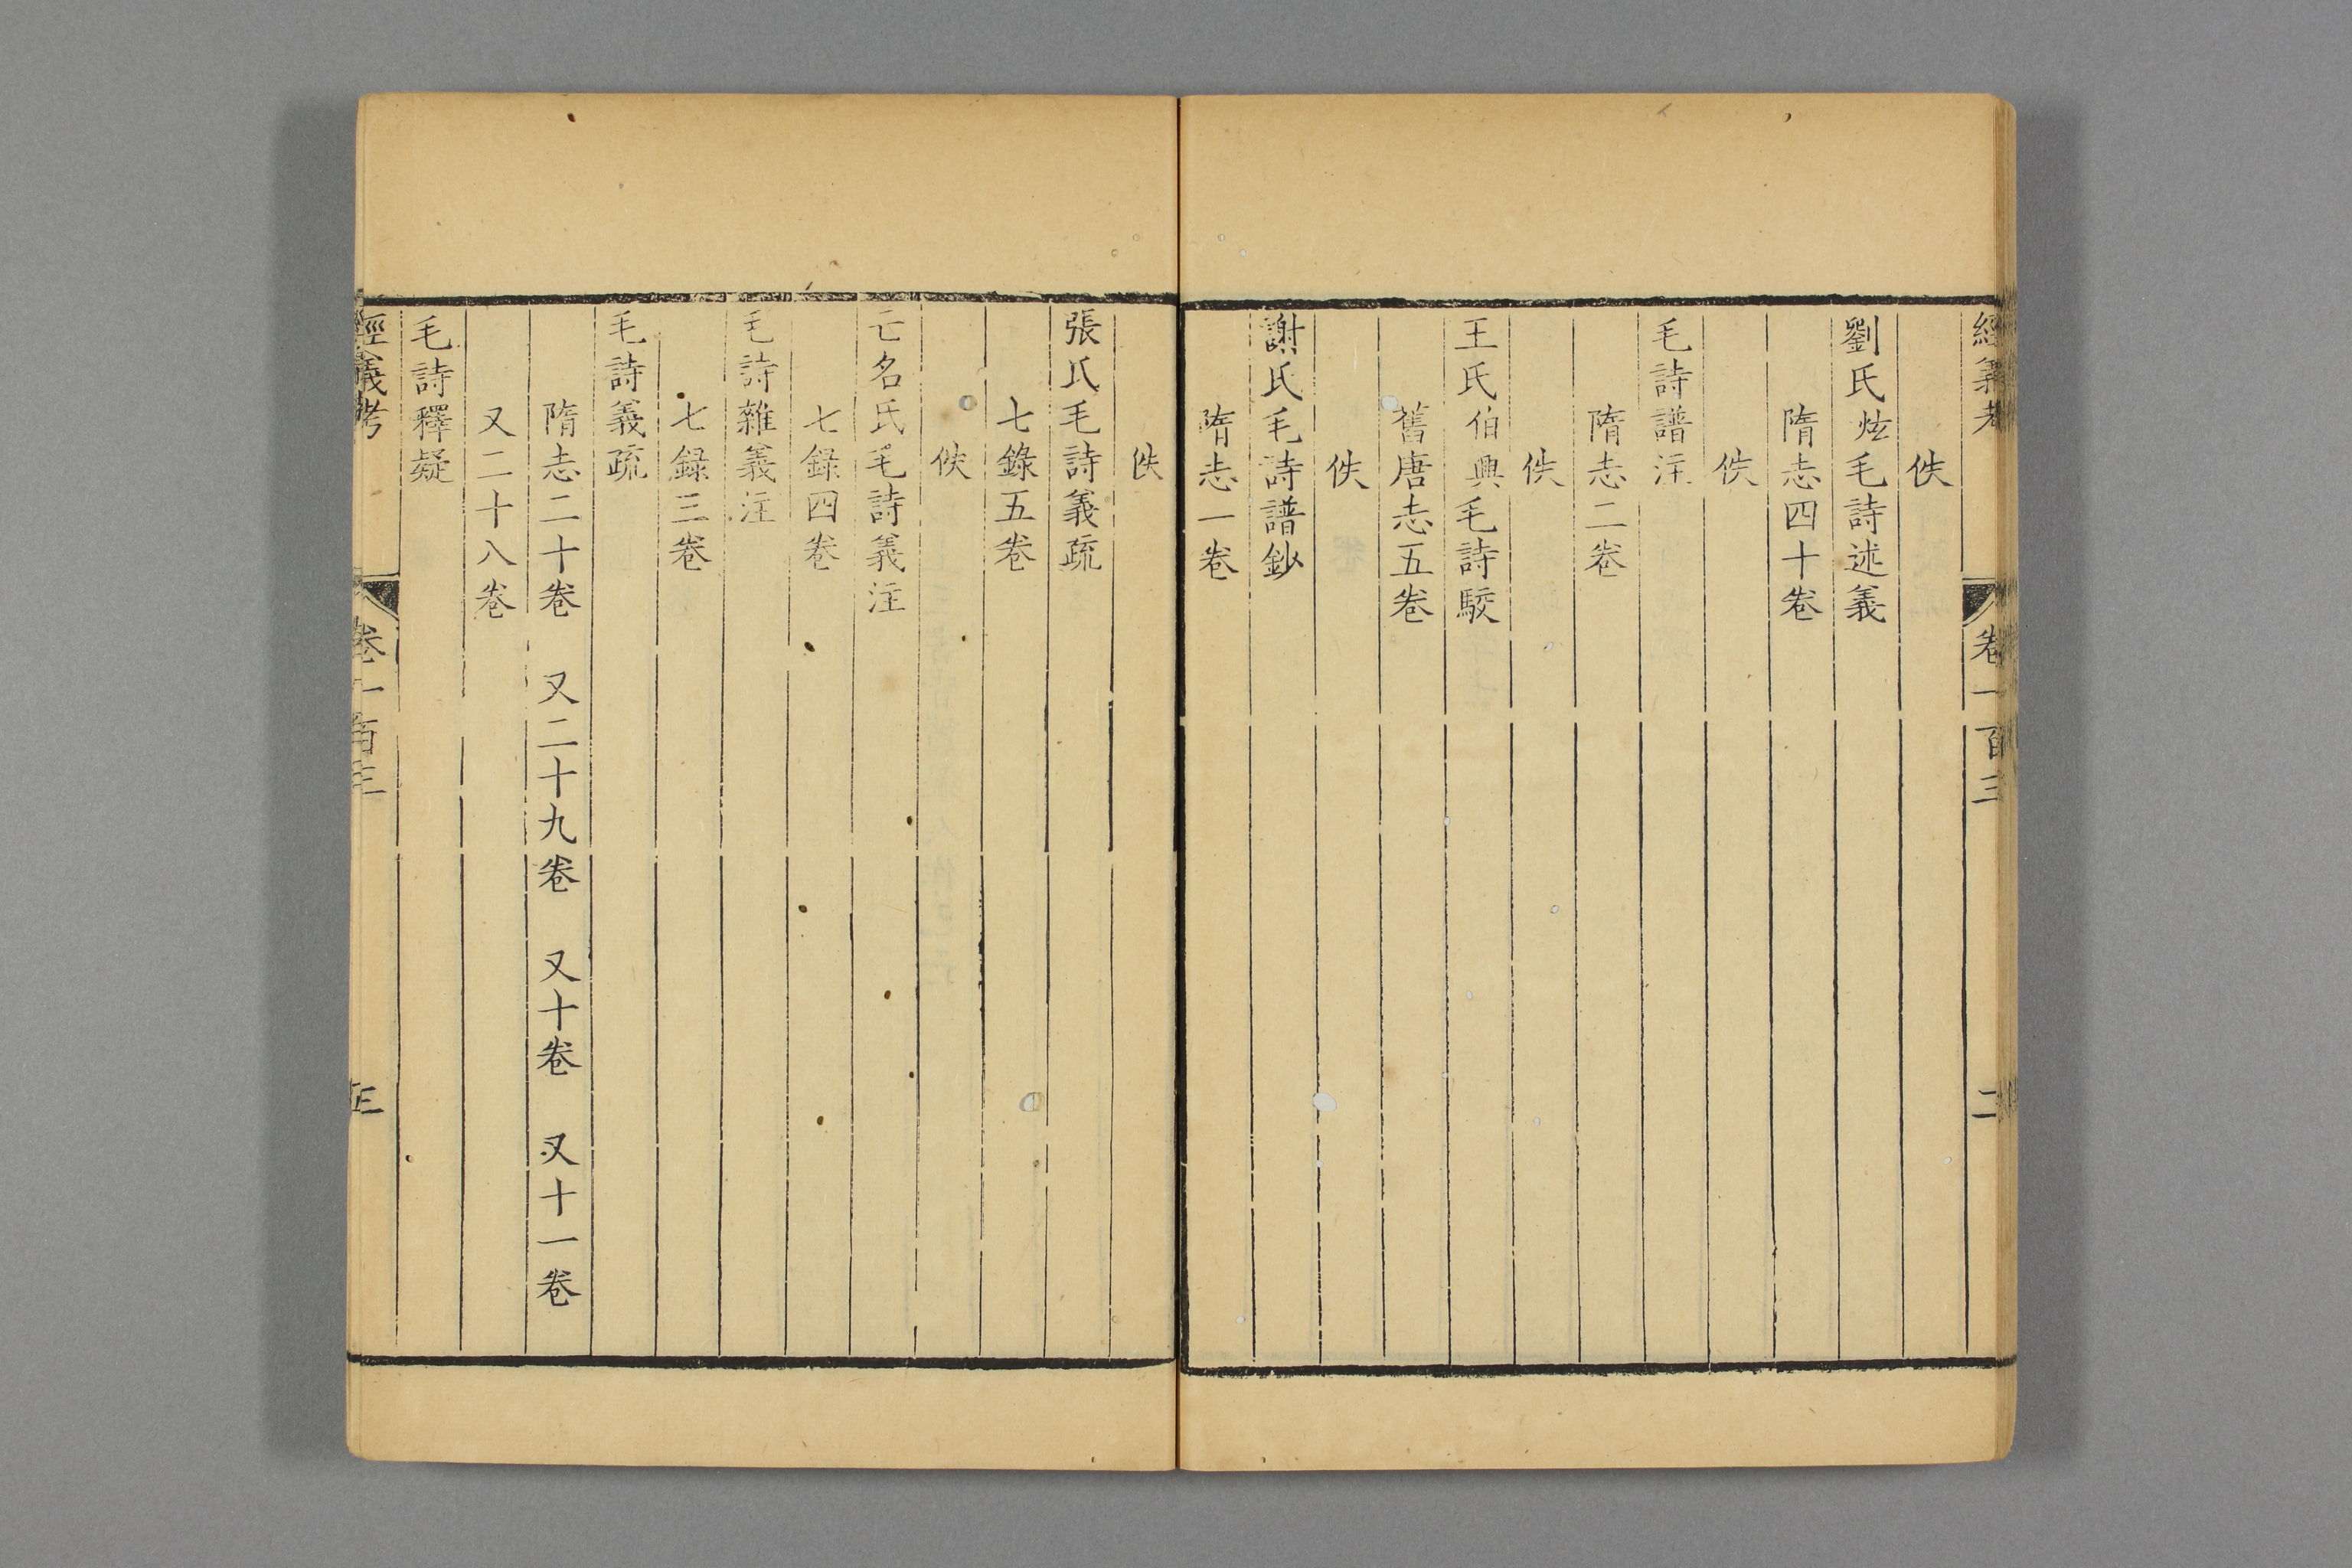 經義考 卷一百三 二
佚
劉氏炫毛詩述義
隋志四十卷
佚
毛詩譜注
隋志二卷
佚
王氏伯興毛詩駁
舊唐志五卷
佚
謝氏毛詩譜鈔
隋志一卷
佚
張氏毛詩義疏
七錄五卷
佚
亡名氏毛詩義注
七録四卷
毛詩雜義注
七録三卷
毛詩義疏
隋志二十卷 又二十九卷 又十卷 又十一卷
又二十八卷
毛詩釋疑
經義考 卷一百三 三